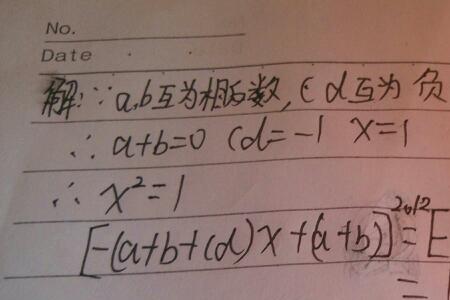 No.
Date
解:∵a,b互为相反数,c d互为 负
∴ a+b=0 cd=-1 x=1
∴ x²=1
[-(a+b+cd)x+(a+b)]²⁰¹²=[
=